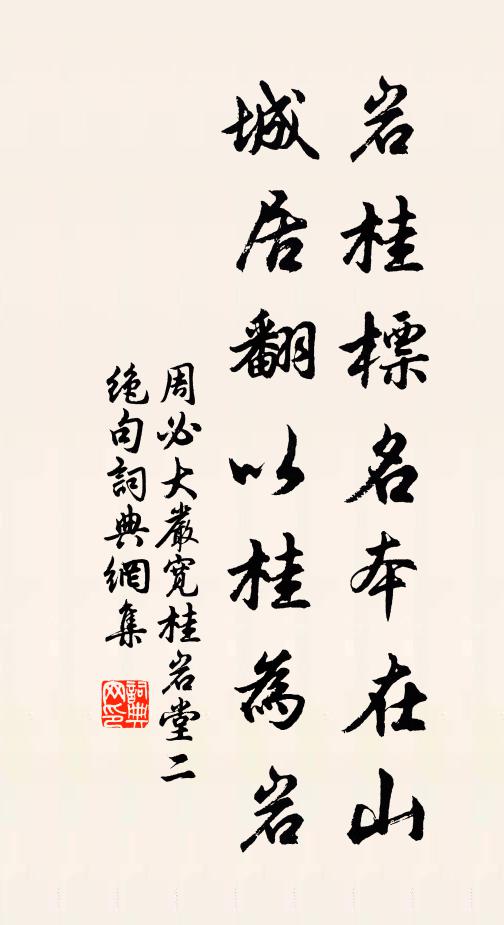 岩桂標名本在山
城居翻以桂為岩
周必大嚴寬桂岩堂二
絶句詞典網集
詞典
网印